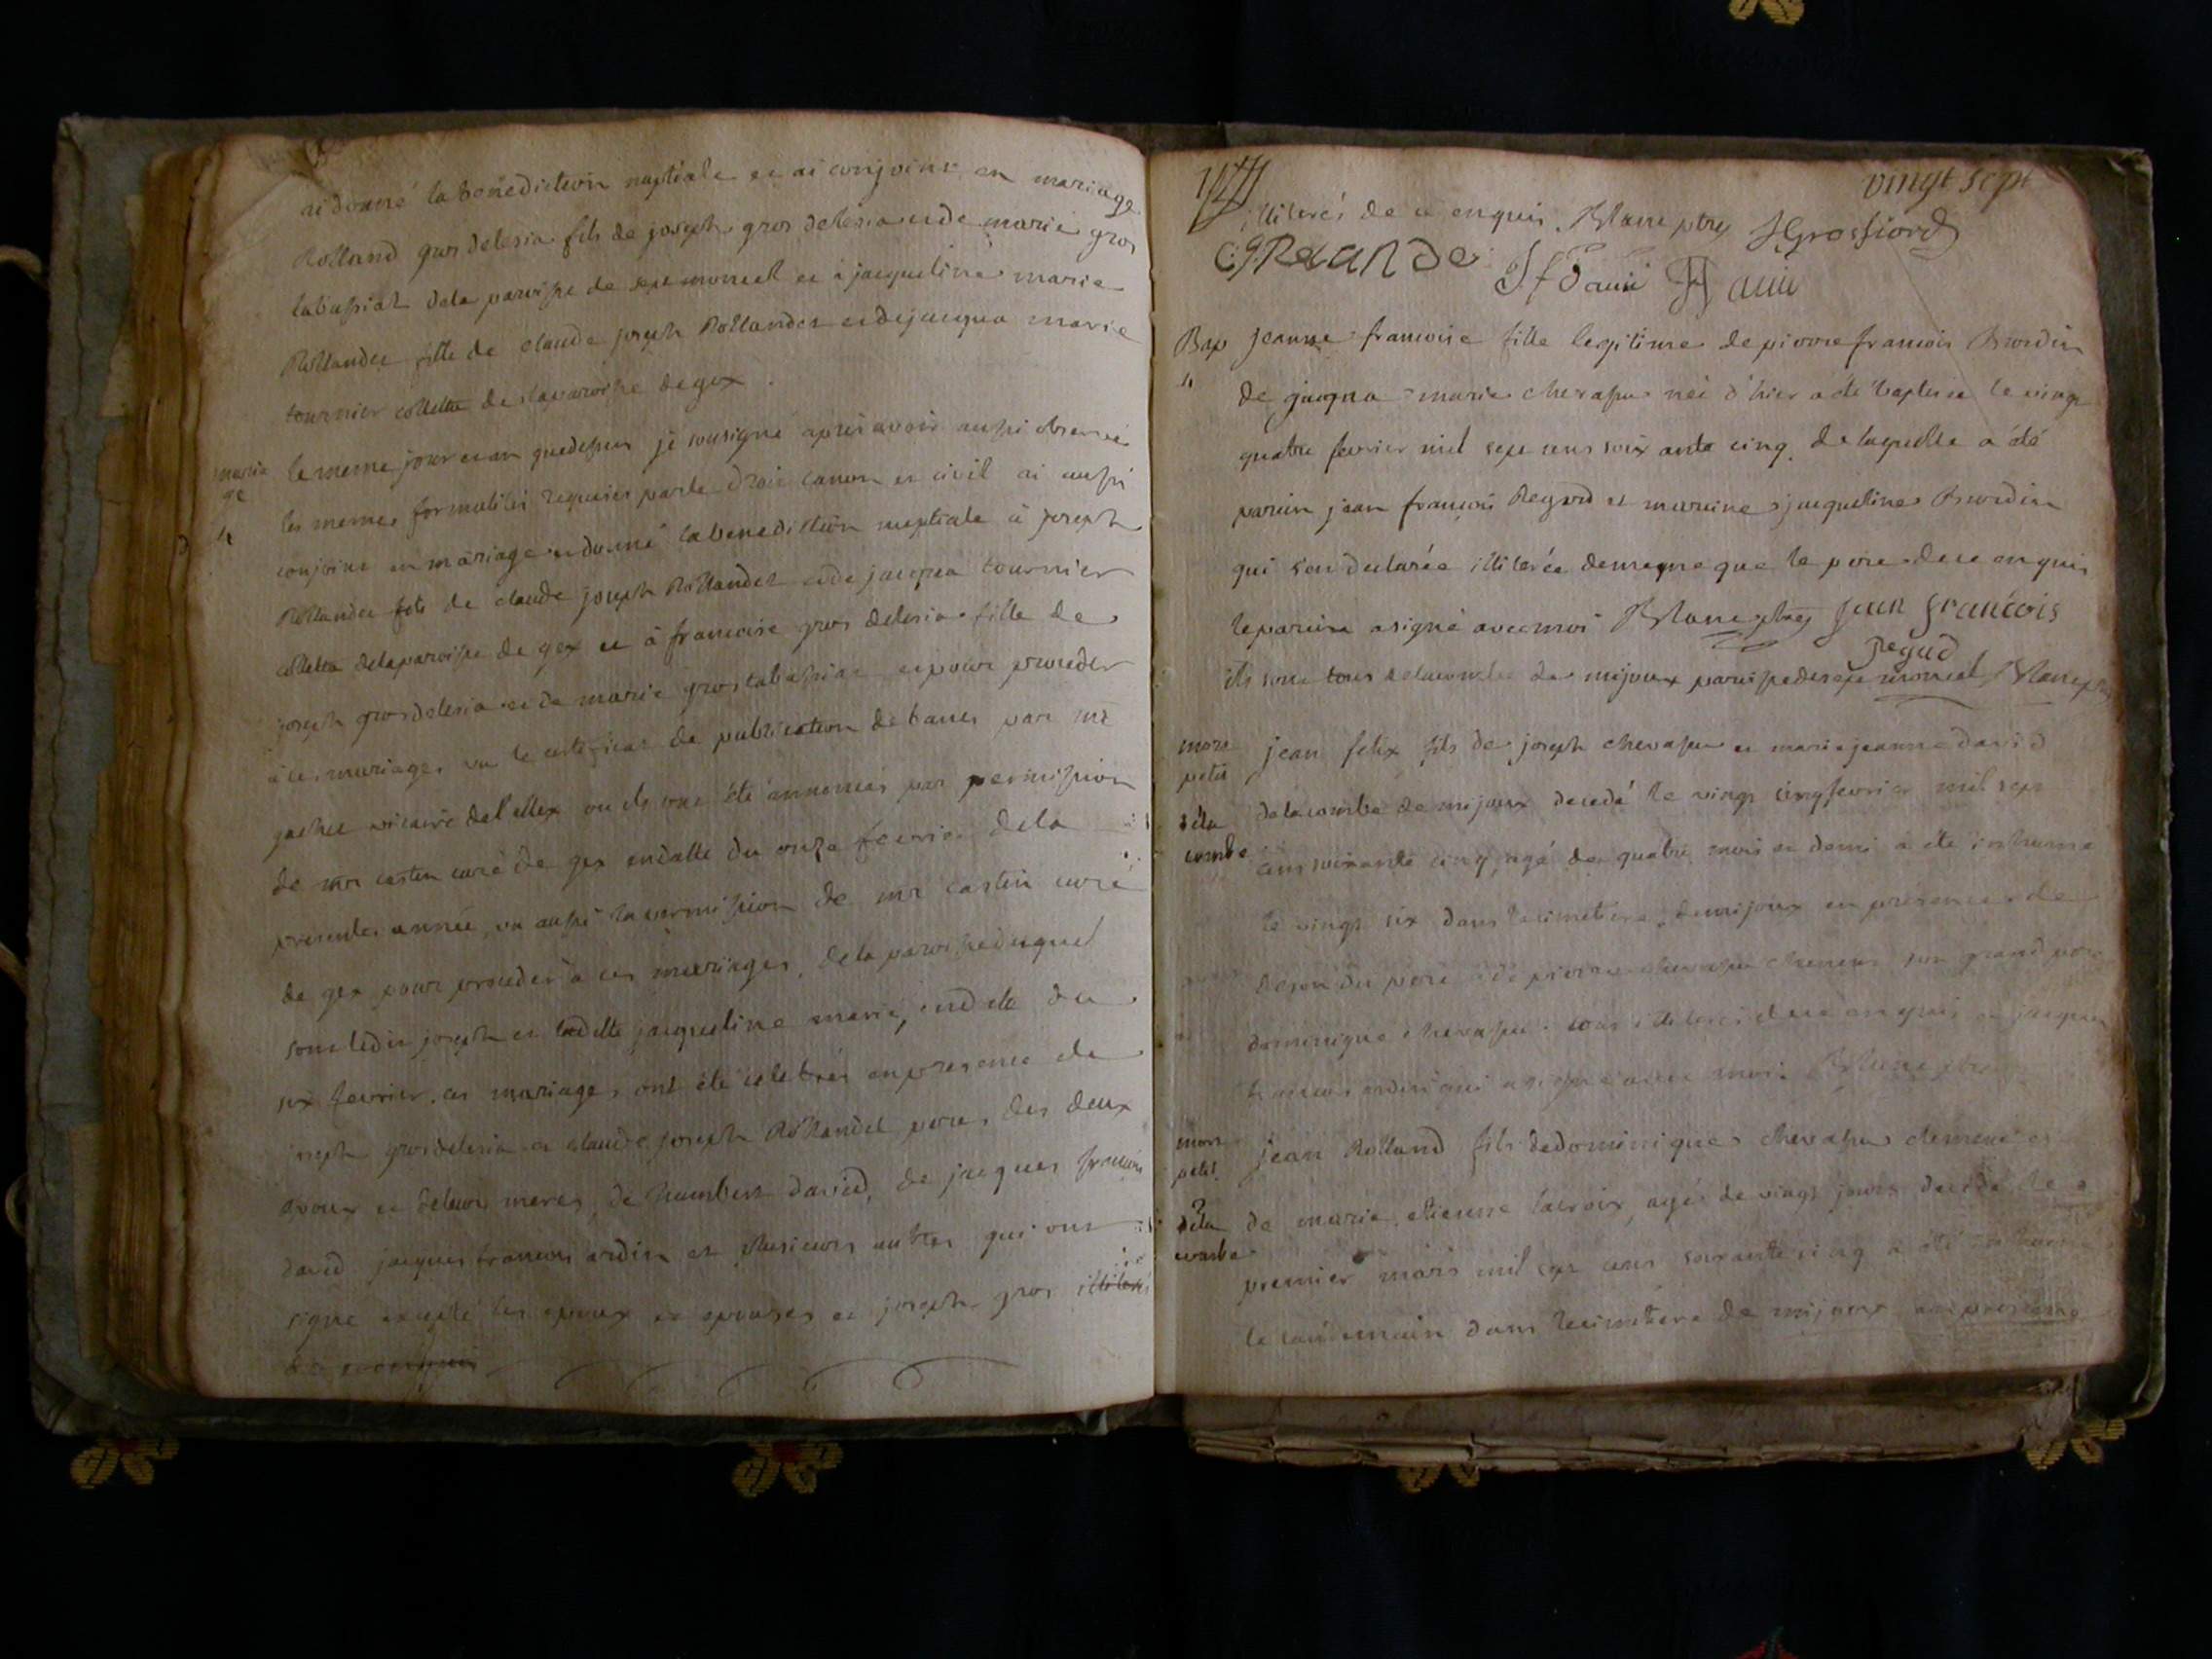 ai donné la bénediction nuptiale et ai conjoint en mariage
Rolland gros delesia fils de joseph gros delesia et de marie gros
labassiat dela paroisse de sept moncel et à jacqueline marie
Rollandet fille de claude joseph Rollandet et de jacqua marie
tournier colletta de la paroisse de gex.
maria
ge
4
le meme jour et an que dessus je sousigné apres avoir aussi observé
les memes formalités requises par le droit canon et civil ai aussi
conjoint en mariage et donné la benediction nuptiale à joseph
Rollandet fils de claude joseph Rollandet et de jacqua tournier
colletta dela paroisse de gex et à francoise gros delesia fille de
joseph gros delesia et de marie gros labassiat et pour proceder
à ces mariages vu le certificat de publication de bancs par mr
vicaire de l'ellex ou ils ont été annoncés par permission
de mr castin curé de gex en datte du onze fevrier dela
presente année, vu aussi la permission de mr castin curé
de gex pour proceder à ces mariages, dela paroisse duquel
sont ledit joseph et ladette jacqueline marie, en date du
six fevrier. ces mariages ont été celebrés en presence de
joseph gros delesia et claude joseph Rollandet peres des deux
epoux et de leurs meres, de humbert david, de jacques francois
david jacques francois ardin et plusieurs autres qui ont
signé excepté les epoux et epouses et joseph gros illiterés
de ce enquis
vingt sept
illiterés de ce enquis. Blanc ptre JGrosfiord
CJ Relande
Bap
4
jeanne francoise fille legitime de pierre francois Burdin
de jacqua marie chevassu née d'hier a été baptisée le vingt
quatre fevrier mil sept cens soixante cinq. de laquelle a été
parein jean francois Regard et mareine jacqueline Burdin
qui s'est declarée illiterée de meme que le pere de ce enquis
le parein a signé avec moi Blanc ptre jean francois
Regad
ils sont tous de la combe de mijoux paroisse de sept moncel Blanc ptre
mort
petit
dela
combe
jean felix fils de joseph chevassu et marie jeanne david
de la combe de mijoux decedé le vingt cinq fevrier mil sept
cens soixante cinq, agé de quatre mois et demi a été inhumé
le vingt six dans le cimetiere de mijoux en presence de
de son dit pere et de pierre chevassu clement son grand pere
dominique chevassu tous illiterés de ce enquis et jacques
francois ardin qui a signé avec moi. Blanc ptre
mort
petit
2
dela
combe
jean Rolland fils de dominique chevassu clement et
de marie etienne lacroix, agé de vingt jours decedé le
premier mars mil sept cens soixante cinq a été inhumé
le lendemain dans le cimetiere de mijoux en presence